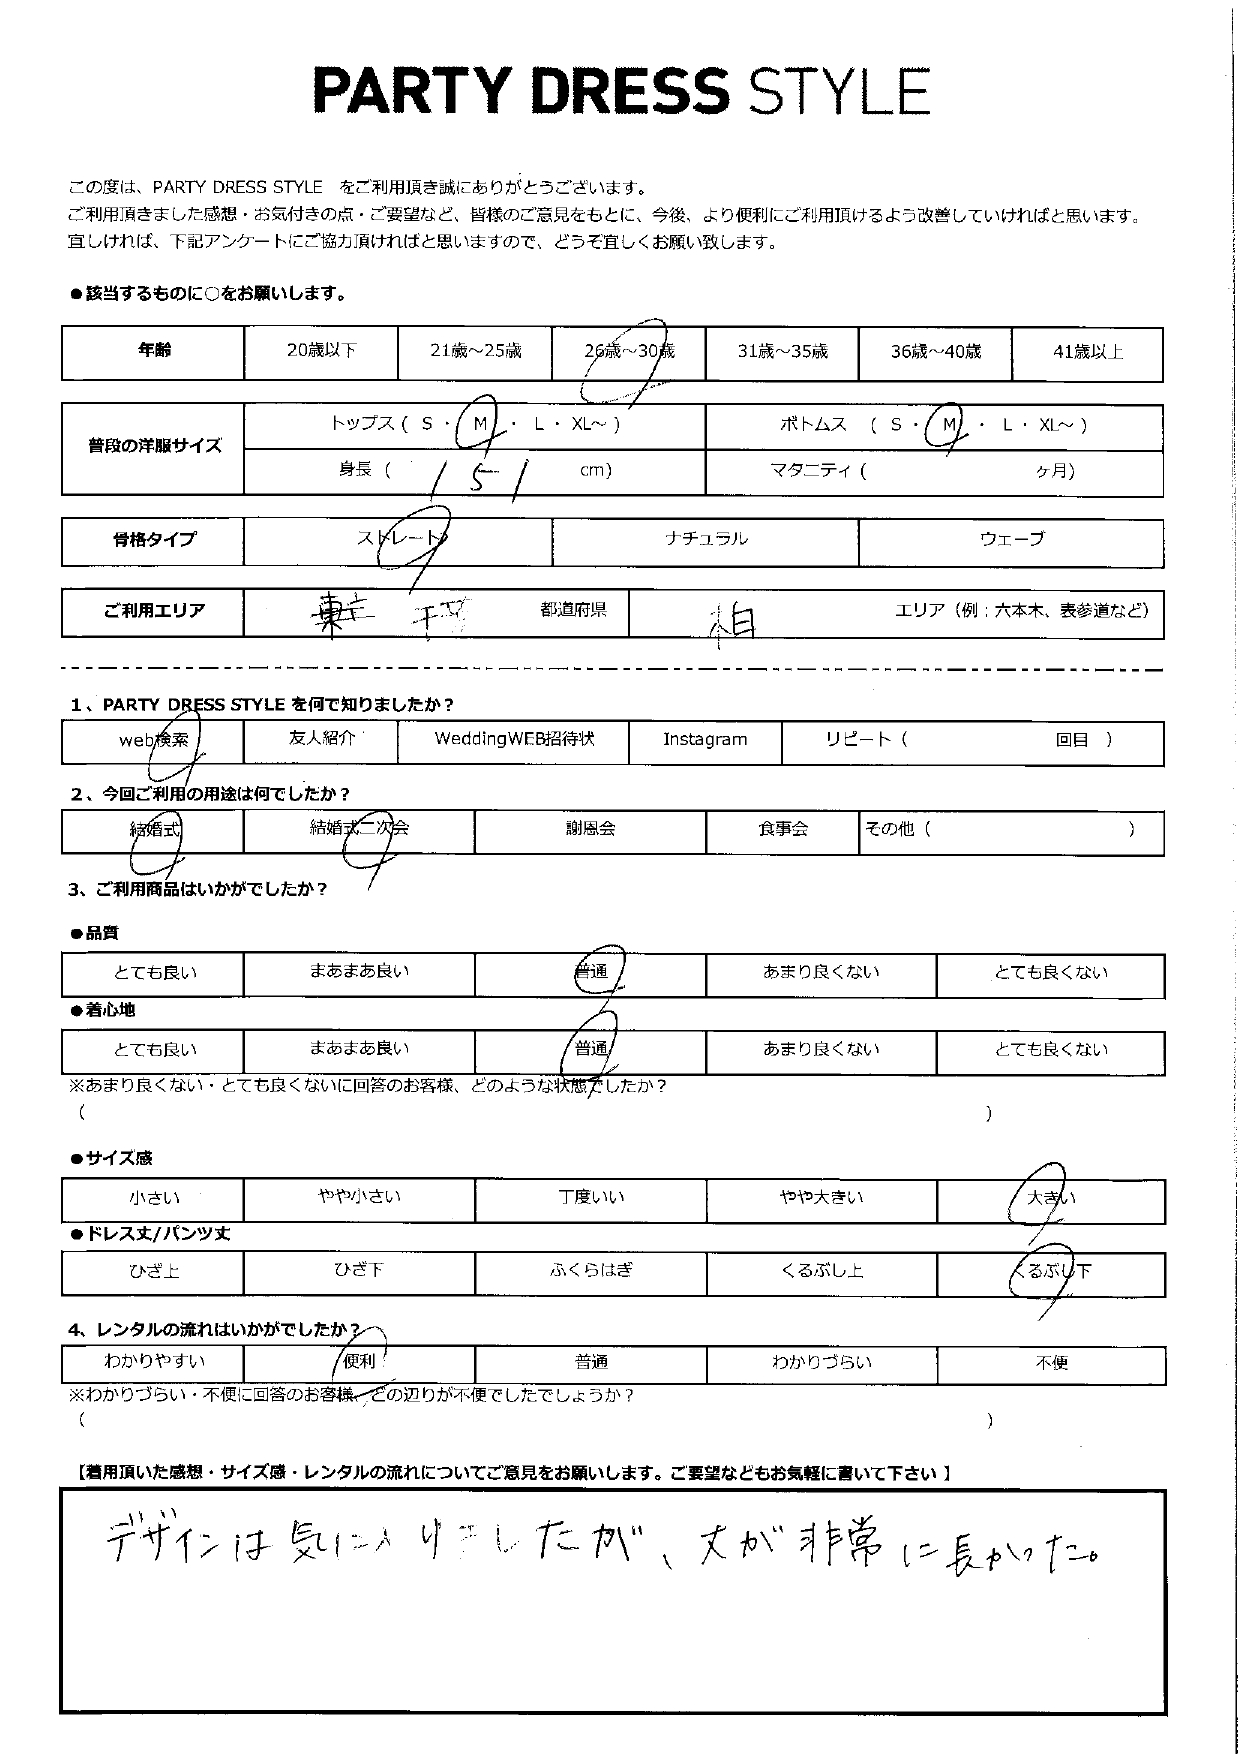 PARTY DRESS STYLE
この度は、PARTY DRESS STYLE をご利用頂き誠にありがとうございます。
ご利用頂きました感想・お気付きの点・ご要望など、皆様のご意見をもとに、今後、より便利にご利用頂けるよう改善していければと思います。
宜しければ、下記アンケートにご協力頂ければと思いますので、どうぞ宜しくお願い致します。
●該当するものに○をお願いします。
年齢 20歳以下 21歳～25歳 26歳～30歳 31歳～35歳 36歳～40歳 41歳以上
普段の洋服サイズ トップス ( S ・ M ・ L ・ XL～ ) ボトムス ( S ・ M ・ L ・ XL～ )
身長 ( 151 cm) マタニティ ( ヶ月)
骨格タイプ ストレート ナチュラル ウェーブ
ご利用エリア 千葉 都道府県 柏 エリア（例：六本木、表参道など）
1、PARTY DRESS STYLE を何で知りましたか？
web検索 友人紹介 WeddingWEB招待状 Instagram リピート ( 回目 )
2、今回ご利用の用途は何でしたか？
結婚式 結婚式二次会 謝恩会 食事会 その他 ( )
3、ご利用商品はいかがでしたか？
●品質
とても良い まあまあ良い 普通 あまり良くない とても良くない
●着心地
とても良い まあまあ良い 普通 あまり良くない とても良くない
※あまり良くない・とても良くないに回答のお客様、どのような状態でしたか？
( )
●サイズ感
小さい やや小さい 丁度いい やや大きい 大きい
●ドレス丈/パンツ丈
ひざ上 ひざ下 ふくらはぎ くるぶし上 くるぶし下
4、レンタルの流れはいかがでしたか？
わかりやすい 便利 普通 わかりづらい 不便
※わかりづらい・不便に回答のお客様、どの辺りが不便でしたでしょうか？
( )
【着用頂いた感想・サイズ感・レンタルの流れについてご意見をお願いします。ご要望などもお気軽に書いて下さい】
デザインは気に入りましたが、丈が非常に長かった。